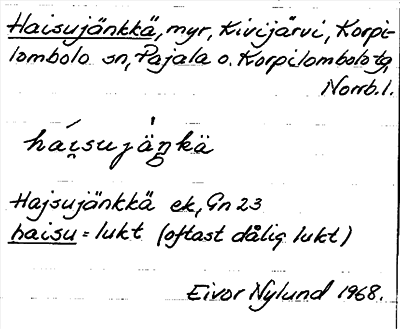 Haisujänkkä, myr, Kivijärvi, Korpi-
lombolo sn, Pajala o. Korpilombolo tg,
Norrb. l.
hái̯sujä̀ŋkä
Hajsujänkkä ek, Gn 23
haisu = lukt (oftast dålig lukt)
Eivor Nylund 1968.